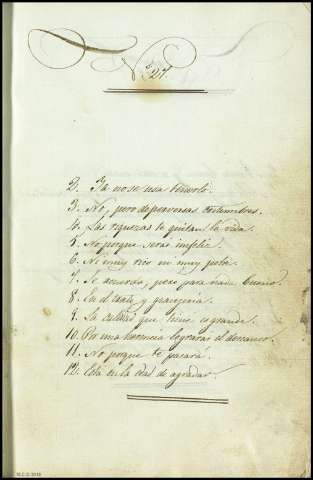 N.º 27.
2. Ya no se usa tenerlo.
3. No, pero de perversas costumbres.
4. Las riquezas te quitan la vida.
5. No porque seras infeliz.
6. Ni muy rico ni muy pobre.
7. Se acuerda, pero para nada bueno.
8. En el canto y gracejeria.
9. La calidad que tiene es grande.
10. Por una herencia lograras el descanso.
11. No porque te pesará.
12. Está en la edad de agradar.